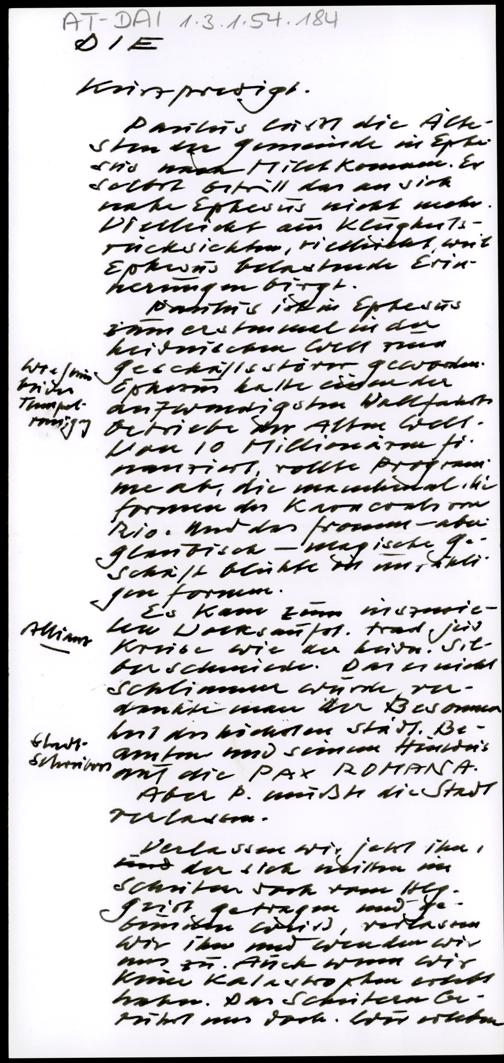 AT-DAI 1.3.1.54.184
DIE
Kurzpredigt.
Paulus läßt die Älte-
sten der Gemeinde in Ephe-
sus nach Milet kommen. Er
selbst betritt das an sich
nahe Ephesus nicht mehr.
Vielleicht aus Klugheits-
rücksichten, vielleicht, weil
Ephesus belastende Erin-
nerungen birgt.
Paulus ist in Ephesus
zum erstenmal in der
heidnischen Welt zum
Geschäftsstörer geworden.
Wie
bei der
Tempel-
reinigg
Ephesus hatte einen der
aufwendigsten Wallfahrts
betriebe der Alten Welt.
Von 10 Millionären fi-
nanziert, rollte Program
me ab, die manchmal die
Formen des Karnevals von
Rio. Und das fromm-aber
gläubisch-magische Ge-
schäft blühte in unzähli
gen Formen.
Es kam zum inszenie-
ten Volksaufst.
Allianz
Kreise wie der heidn. Sil-
berschmiede. Das es nicht
schlimmer wurde, ver-
dankte man der Besonnen
heit des höchsten städt. Be-
Stadt-
schreibers
amten und seinem Hinweis
auf die PAX ROMANA.
Aber P. mußte die Stadt
verlassen.
Verlassen wir jetzt ihn,
und der sich mitten im
Scheitern doch vom Hlg.
Geist getragen und ge-
bunden weiß, verlassen
wir ihn und wenden wir
uns zu. Auch wenn wir
keine Katastrophen erlebt
haben. Das Scheitern be-
rührt uns doch. Wir erleben